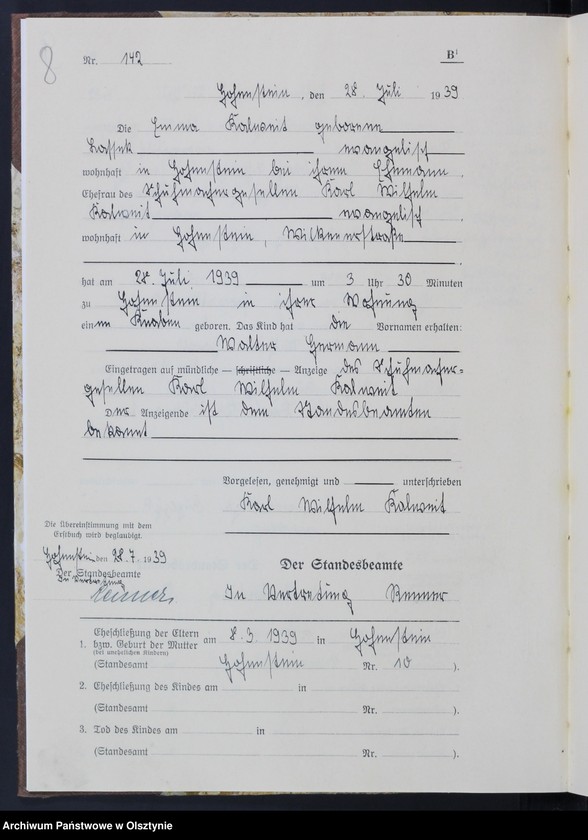 8
Nr. 142
B¹
Hohenstein, den 28. Juli 1939
Die Emma Kalweit geborene
Lassek evangelisch
wohnhaft in Hohenstein bei ihrem Ehemann,
Ehefrau des Schuhmachergesellen Karl Wilhelm
Kalweit evangelisch,
wohnhaft in Hohenstein, Wilkenerstraße
hat am 28. Juli 1939 um 3 Uhr 30 Minuten
zu Hohenstein in ihrer Wohnung
einen Knaben geboren. Das Kind hat die Vornamen erhalten:
Walter Hermann
Eingetragen auf mündliche — schriftliche — Anzeige des Schuhmacher-
gesellen Karl Wilhelm Kalweit
Der Anzeigende ist dem Standesbeamten
bekannt
Vorgelesen, genehmigt und unterschrieben
Karl Wilhelm Kalweit
Die Übereinstimmung mit dem
Erstbuch wird beglaubigt.
Hohenstein den 28.7. 1939
Der Standesbeamte
In Vertretung
Renner
Der Standesbeamte
In Vertretung Renner
1. Eheschließung der Eltern bzw. Geburt der Mutter (bei unehelichen Kindern) am 8.3.1939 in Hohenstein
(Standesamt Hohenstein Nr. 10 ).
2. Eheschließung des Kindes am in
(Standesamt Nr. ).
3. Tod des Kindes am in
(Standesamt Nr. ).
Archiwum Państwowe w Olsztynie